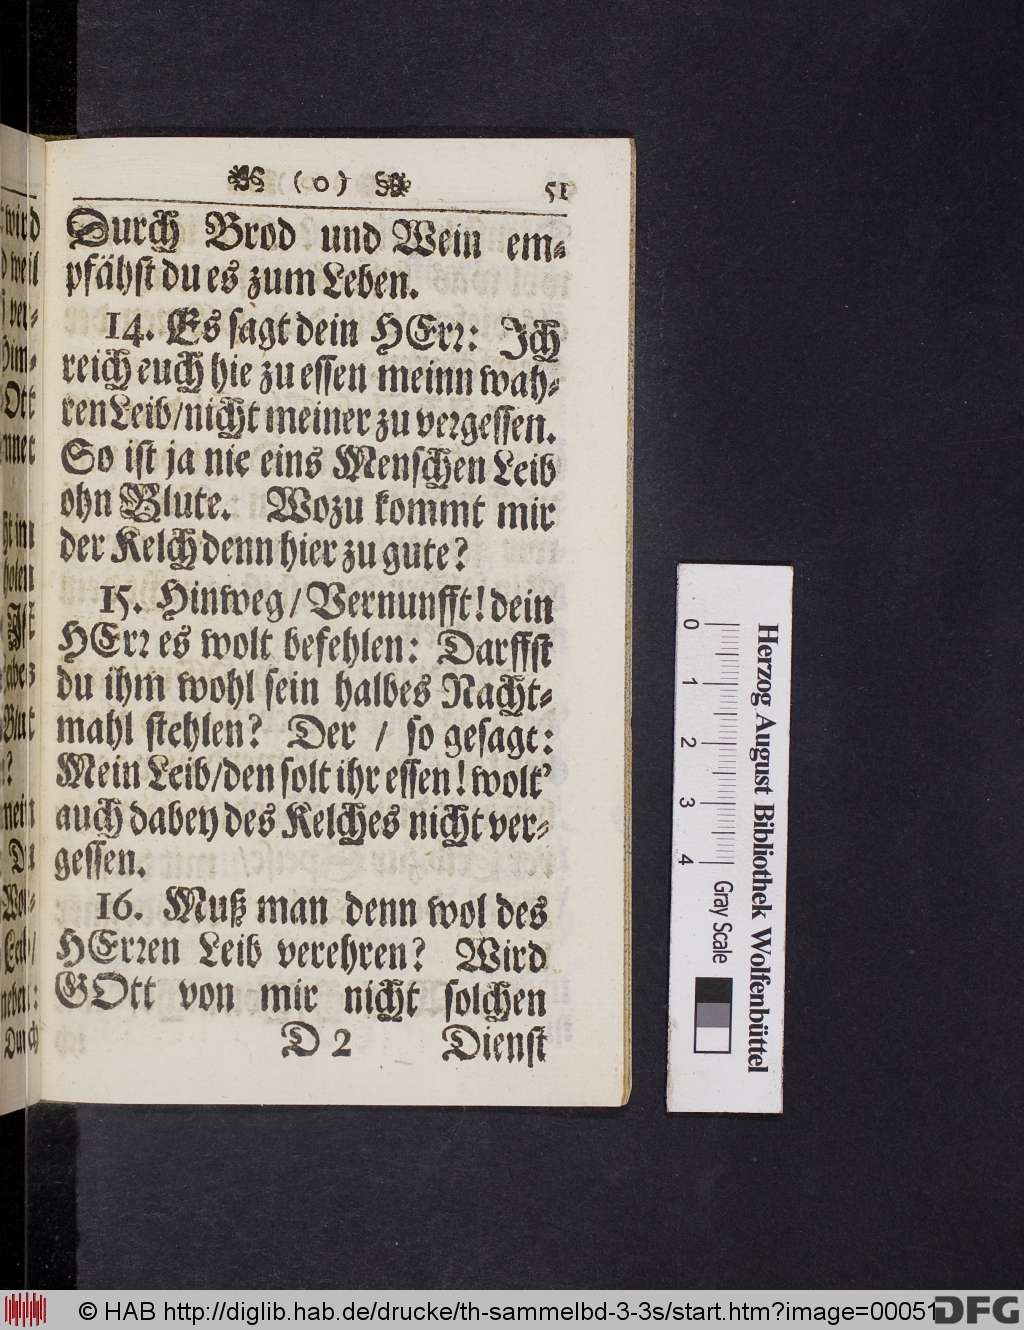 ( 0 ) 51
Durch Brod und Wein em-
pfähst du es zum Leben.
14. Es sagt dein HErr: Ich
reich euch hie zu essen meinn wah-
ren Leib/nicht meiner zu vergessen.
So ist ja nie eins Menschen Leib
ohn Blute. Wozu kommt mir
der Kelch denn hier zu gute?
15. Hinweg/Vernunfft! dein
HErr es wolt befehlen: Darffst
du ihm wohl sein halbes Nacht-
mahl stehlen? Der / so gesagt:
Mein Leib/den solt ihr essen! wolt'
auch dabey des Kelches nicht ver-
gessen.
16. Muß man denn wol des
HErren Leib verehren? Wird
GOtt von mir nicht solchen
D 2 Dienst
wird
weil
ver-
Him-
Ott
nnet
Blut
mein
Du
Durch
0 1 2 3 4
Herzog August Bibliothek Wolfenbüttel
Gray Scale
© HAB http://diglib.hab.de/drucke/th-sammelbd-3-3s/start.htm?image=00051
DFG